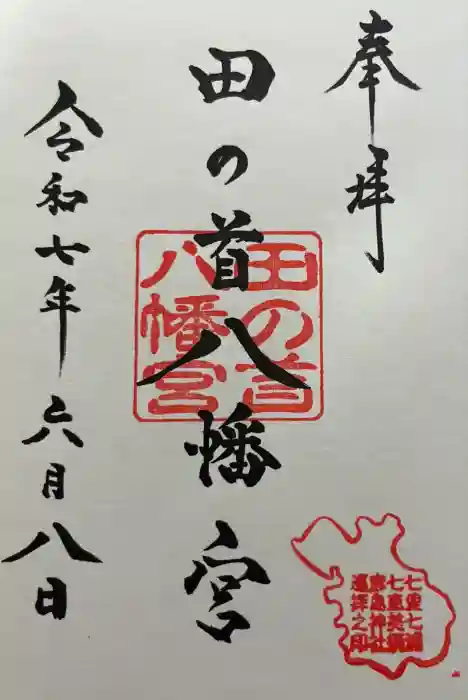 奉拝
田の首八幡宮
田の首
八幡宮
令和七年六月八日
七里七浦
七恵美須
遍拝之印